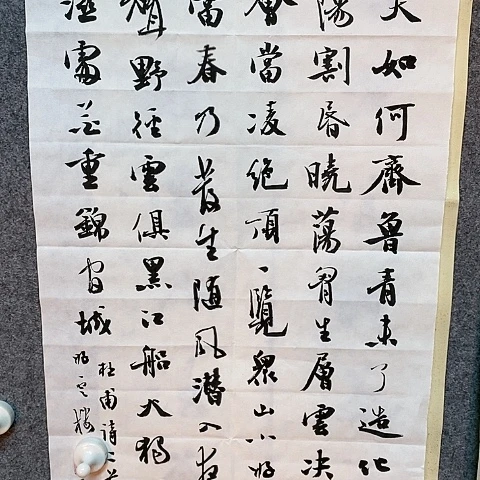 夫如何齊魯青未了造化
陽割昏曉蕩胷生層雲决
會當凌絕頂一覽衆山小好
當春乃發生随風潜入夜
聲野徑雲俱黑江船火獨
濕處花重錦官城
杜甫詩二首